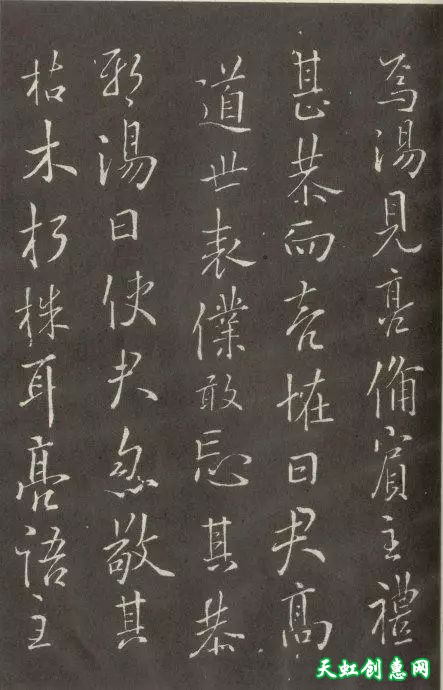 焉湯見亮備賓主禮
甚恭而曰尹高
道世表僕敢忘其恭
耶湯曰使尹忽敬其
枯木朽株耳亮語主
天虹创惠网